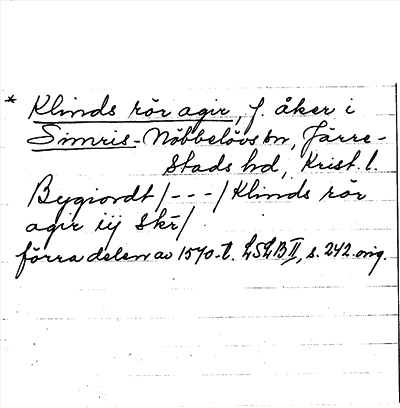 * Klinds rör agir, f. åker i
Simris-Nöbbelövs sn, Järre-
stads hd, Krist. l.
Bygiordt /---/ Klinds rör
agir iij Skr/
förra delen av 1570-t. LSLB II, s. 242. orig.